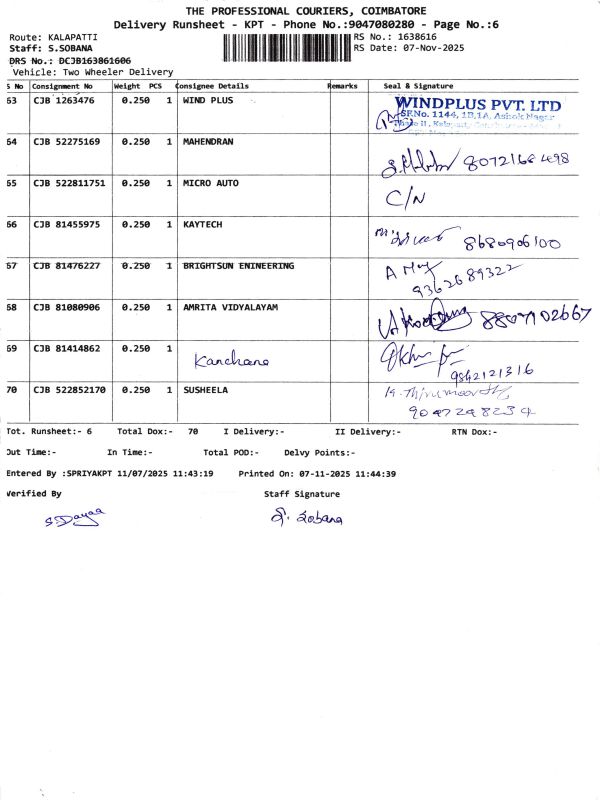 THE PROFESSIONAL COURIERS, COIMBATORE
Delivery Runsheet - KPT - Phone No.:9047080280 - Page No.:6
Route: KALAPATTI RS No.: 1638616
Staff: S.SOBANA RS Date: 07-Nov-2025
DRS No.: DCJB163861606
Vehicle: Two Wheeler Delivery
S No Consignment No Weight PCS Consignee Details Remarks Seal & Signature
63 CJB 1263476 0.250 1 WIND PLUS WINDPLUS PVT. LTD
SF.No. 1144, 1B,1A, Ashok Nagar
64 CJB 52275169 0.250 1 MAHENDRAN
65 CJB 522811751 0.250 1 MICRO AUTO C/N
66 CJB 81455975 0.250 1 KAYTECH 8680906100
67 CJB 81476227 0.250 1 BRIGHTSUN ENINEERING
9362689322
68 CJB 81080906 0.250 1 AMRITA VIDYALAYAM
69 CJB 81414862 0.250 1 Kanchana
9842121316
70 CJB 522852170 0.250 1 SUSHEELA
9047248234
Tot. Runsheet:- 6 Total Dox:- 70 I Delivery:- II Delivery:- RTN Dox:-
Out Time:- In Time:- Total POD:- Delvy Points:-
Entered By :SPRIYAKPT 11/07/2025 11:43:19 Printed On: 07-11-2025 11:44:39
Verified By Staff Signature
S. Dayaa S. Sobana